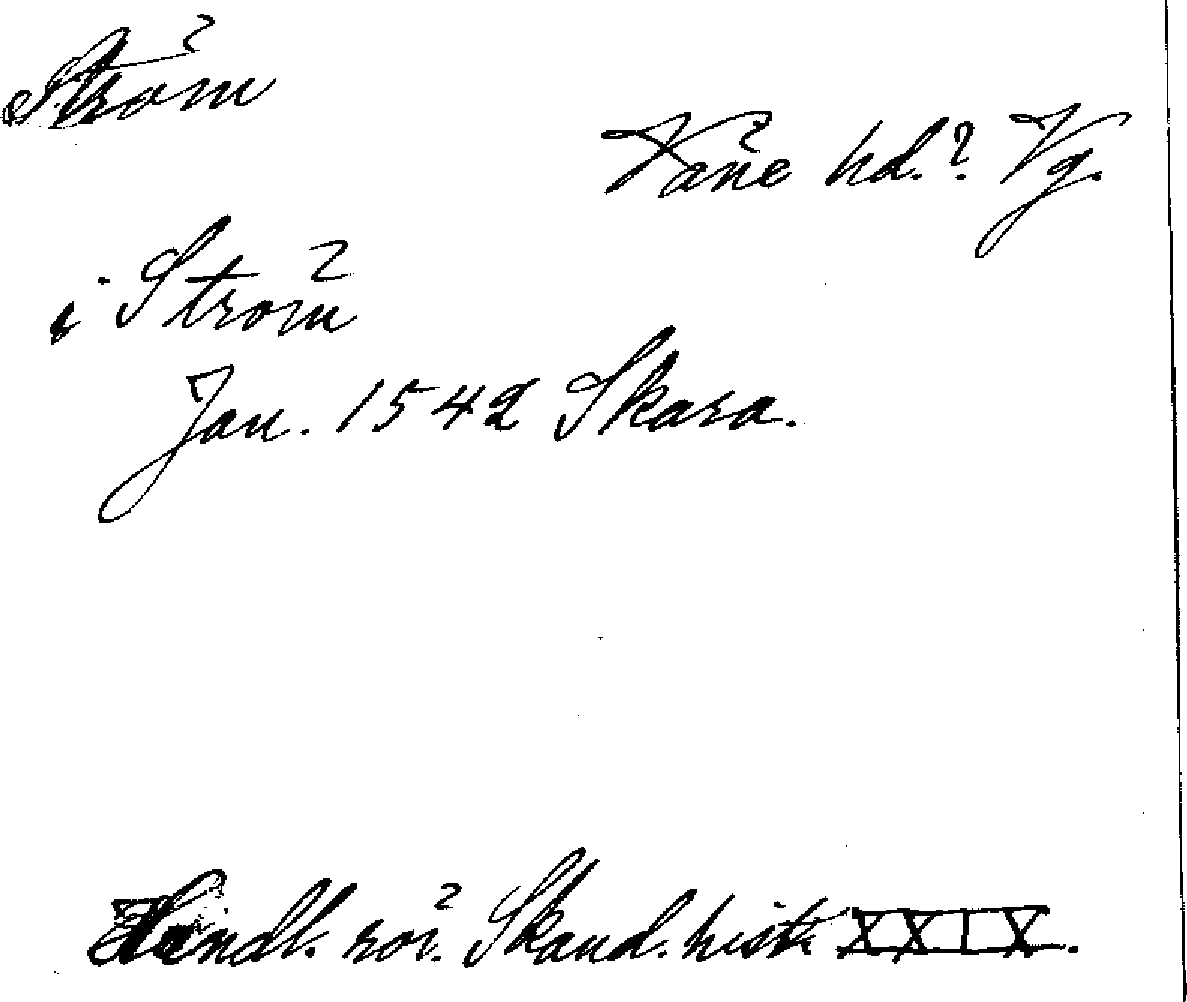 Ström
Väne hd.? Vg.
i Ström
Jan. 1542 Skara.
Handl. rör. Skand. hist. XXIX.